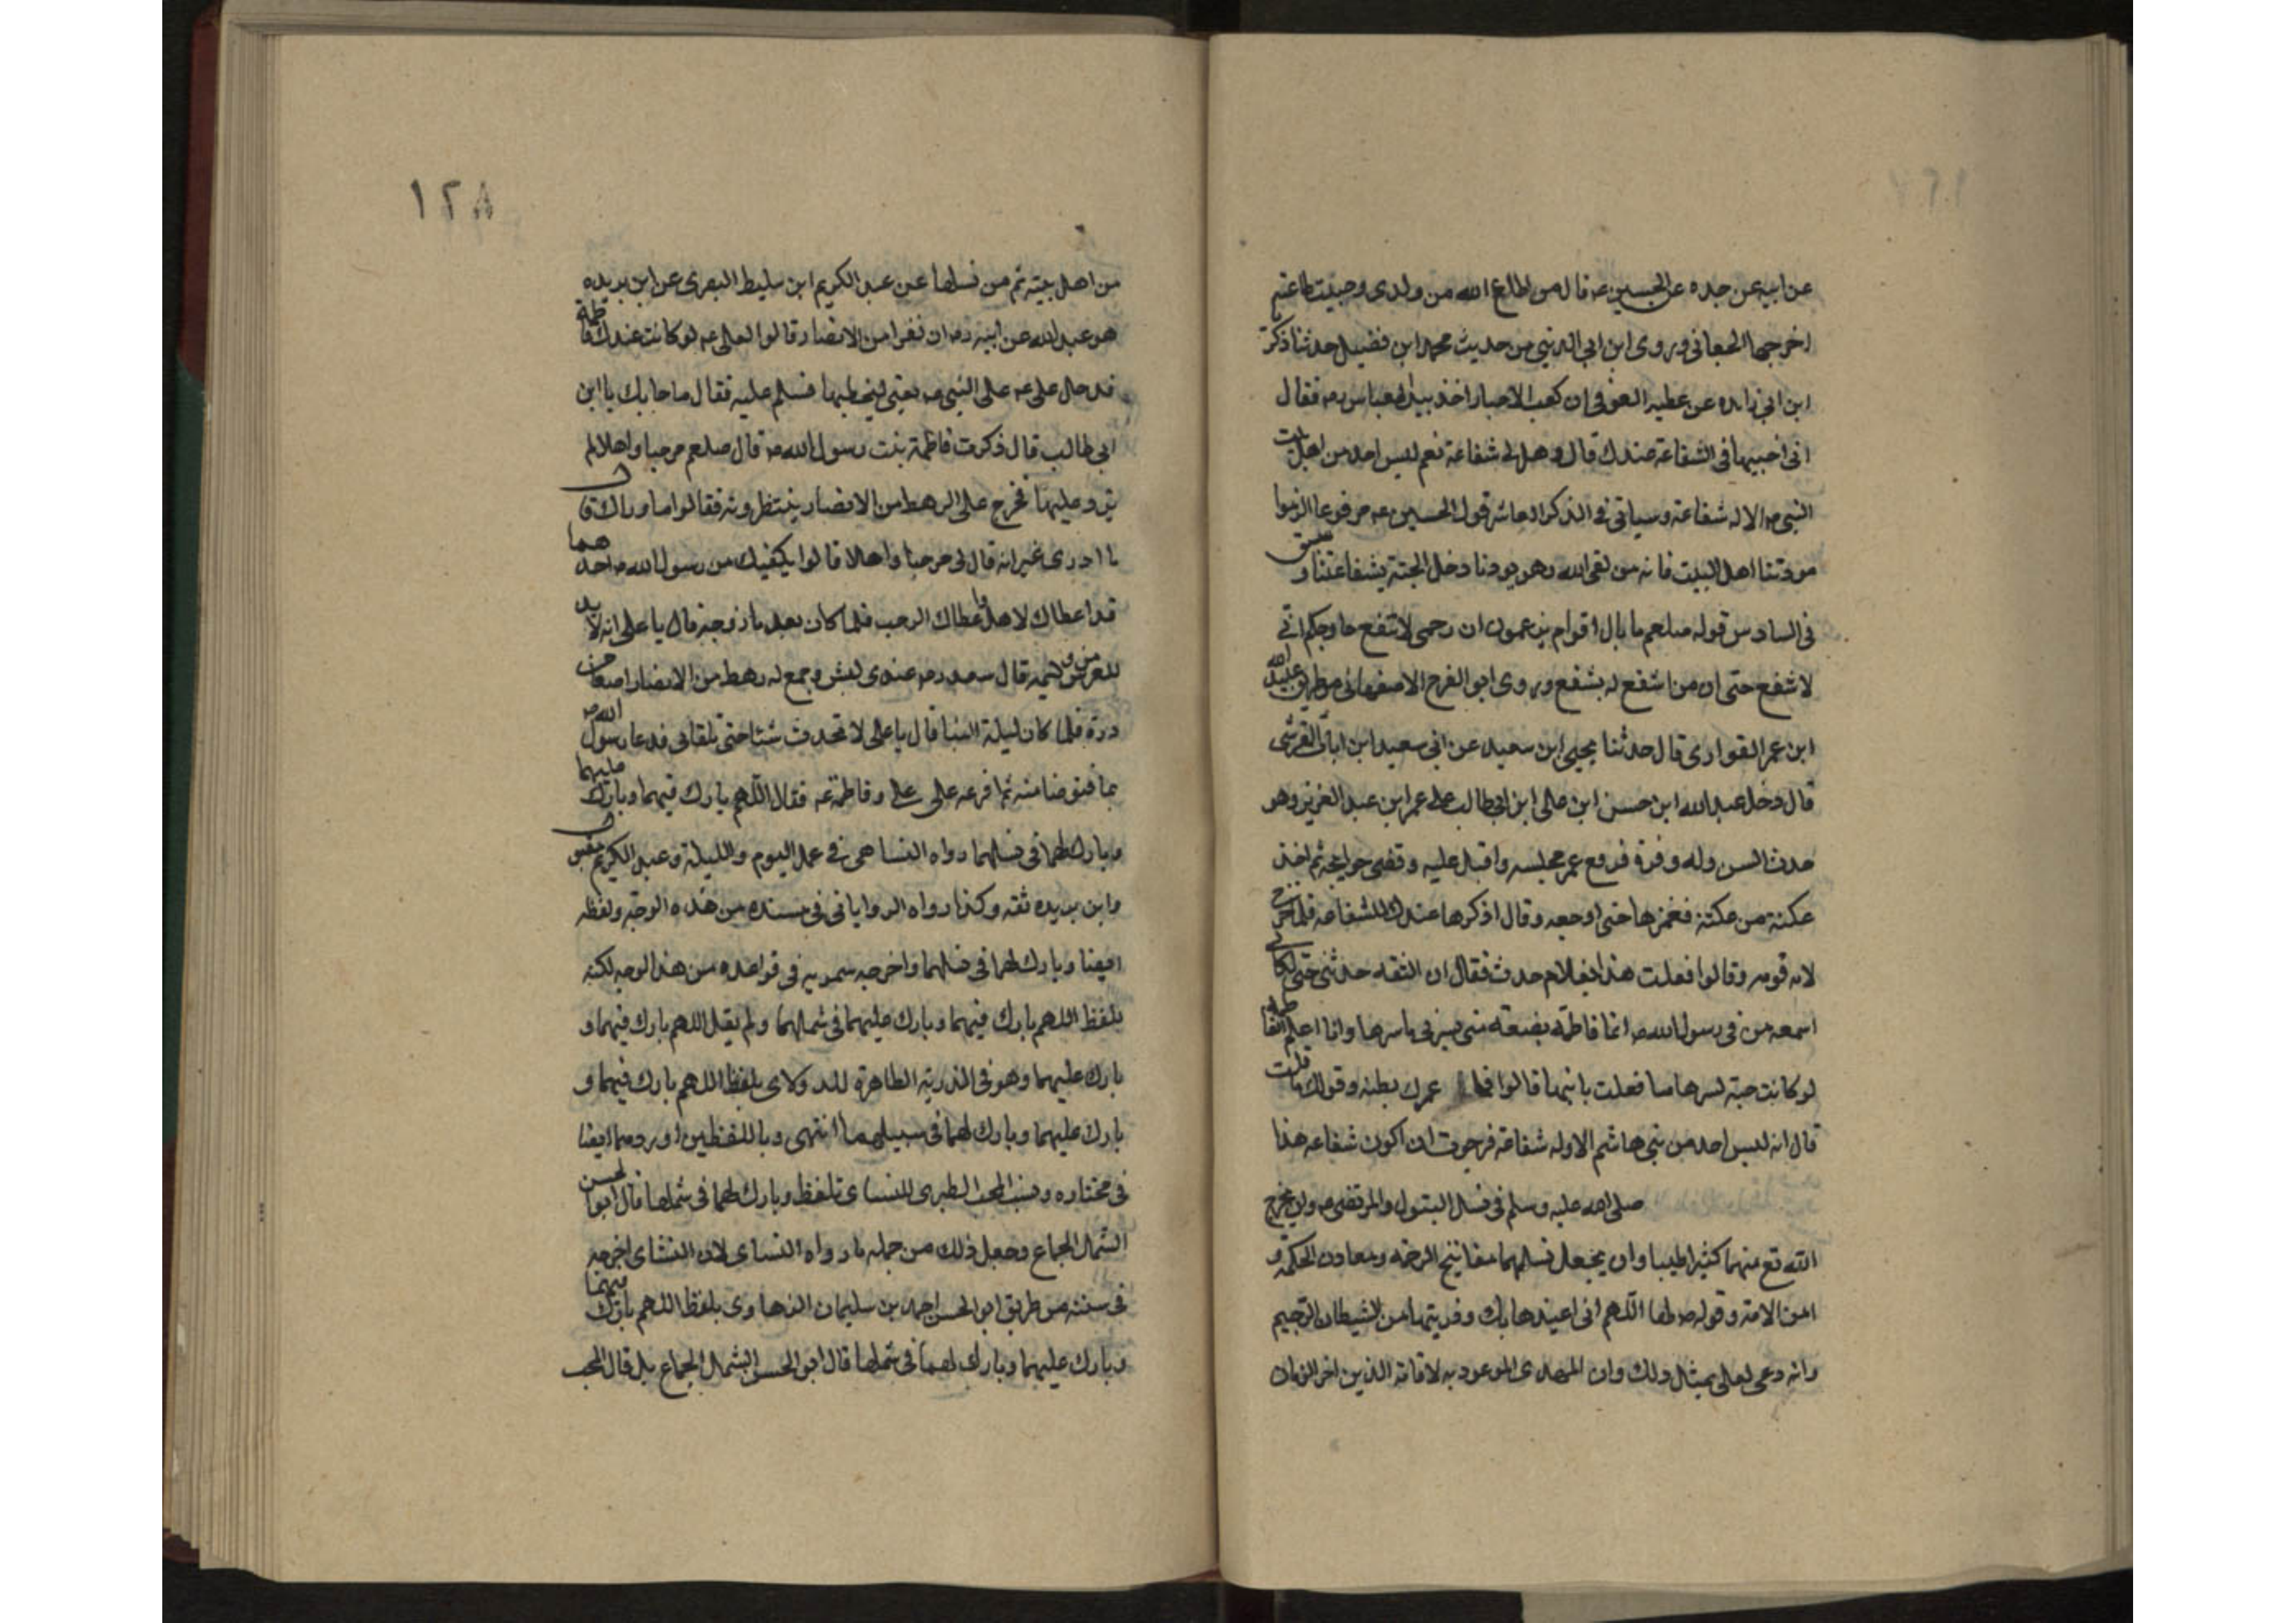 عن ابيه عن جده عن الحسين عه قال من اطاع الله من ولدى وجبت طاعته
اخرجها الجعابى وروى ابن ابى الدنيى من حديث محمد ابن فضيل حدثنا ذكريا
ابن ابى زايده عن عطيه العوفى ان كعب الاحبار اخذ بيد العباس رمه فقال
انى اختبيها فى الشفاعة عندك قال وهل لى شفاعة نعم ليس احد من اهل بيت
النبى مه الا له شفاعة وسياتى فى الذكر العاشر قول الحسين عه مرفوعا الزموا
مودتنا اهل البيت فانه من لقى الله وهو يودنا دخل الجنة بشفاعتنا و
فى السادس قوله صلعم ما بال اقوام يزعمون ان رحمى لا تنفع حا وحكم انى
لا شفع حتى ان من اشفع له يشفع وروى ابو الفرج الاصفهانى من طريق عبيد الله
ابن عمر القوارى قال حدثنا يحيى ابن سعيد عن ابى سعيد ابن ابان القرشى
قال دخل عبد الله ابن حسن ابن على ابن ابى طالب على عمر ابن عبد العزيز وهو
حدث السن وله وفرة فرفع عمر مجلسه واقبل عليه وقضى حوايجه ثم اخذ
عكنة من عكنه فغمزها حتى اوجعه وقال اذكرها عندك للشفاعه فلما خرج
لامه قومه وقالوا فعلت هذا بغلام حدث فقال ان الثقه حدثنى حتى لكانى
اسمعه من فى رسول الله مه انما فاطمة بضعه منى يسرنى ما سرها وانا اعلم ان فاطمه
لو كانت حية لسرها ما فعلت بابنها قالوا فما عمزك بطنه وقولك ما قلت
قال انه ليس احد من بنى هاشم الا وله شفاعة فرجوت ان اكون شفاعه هذا
صلى الله عليه وسلم فى نسل البتول والمرتضى مه وان يخرج
الله تع منهما كثيرا طيبا وان يجعل نسلهما مفاتيح الرحمه ومعادن الحكمة و
امن الامة وقوله مه لها اللهم انى اعيذها بك وذريتها من الشيطان الرجيم
وانه دعى لعلى بمثل ذلك وان المهدى الموعود به لاقامة الدين اخر الزمان
١٢٨
من اهل بيته ثم من نسلها عن عبد الكريم ابن سليط البصرى عن ابن بريده
هو عبد الله عن ابيه رمه ان نفرا من الانصار قالوا لعلى عه لو كانت عندك فاطمة
فدخل على عه على النبى مه يعنى ليخطبها فسلم عليه فقال ما حابك يا ابن
ابى طالب قال ذكرت فاطمة بنت رسول الله مه قال صلعم مرحبا واهلا لم
يزد عليها فخرج على الرهط من الانصار ينتظرونه فقالوا ما وراك قال
ما ادرى غير انه قال لى مرحبا واهلا قالوا يكفيك من رسول الله مه احدهما
قد اعطاك لاهل واعطاك الرحب فلما كان بعد ما زوجه قال يا على انه لابد
للعرس من وليمه قال سعد رمه عندى كبش وجمع له رهط من الانصار اصعا من
درة فلما كان ليلة البنا قال يا على لا تحدث شئا حتى تلقانى فدعا رسول الله مه
بما فتوضا منه ثم افرغه على على وفاطمة عه فقال اللهم بارك فيهما وبارك عليهما
وبارك لهما فى نسلهما رواه النساهى فى عمل اليوم والليلة وعبد الكريم مقبول
وابن بريده ثقه وكذا رواه الرواياتى فى مسنده من هذه الوجه ولفظه
ايضا وبارك لهما فى نسلهما واخرجه سمويه فى فواعده من هذا لوجه لكنه
بلفظ اللهم بارك فيهما وبارك عليهما فى شملهما ولم يقل اللهم بارك فيهما و
بارك عليهما وهو فى الذرية الطاهرة للدولابى بلفظ اللهم بارك فيهما و
بارك عليهما وبارك لهما فى سبيلهما انتهى وباللفظين اوردهما ايضا
فى مختاره ونسب المحب الطبرى للنساى تلفظ وبارك لهما فى شملها قال ابو الحسن
الشمال الجماع وجعل ذلك من جمله ما رواه النساى لان النشاى اخرجه
فى سننه من طريق ابو الحسن احمد بن سليمان الرهاوى بلفظ اللهم بارك فيهما
وبارك عليهما وبارك لهما فى شملها قال ابو الحسن الشمال الجماع بل قال المحب